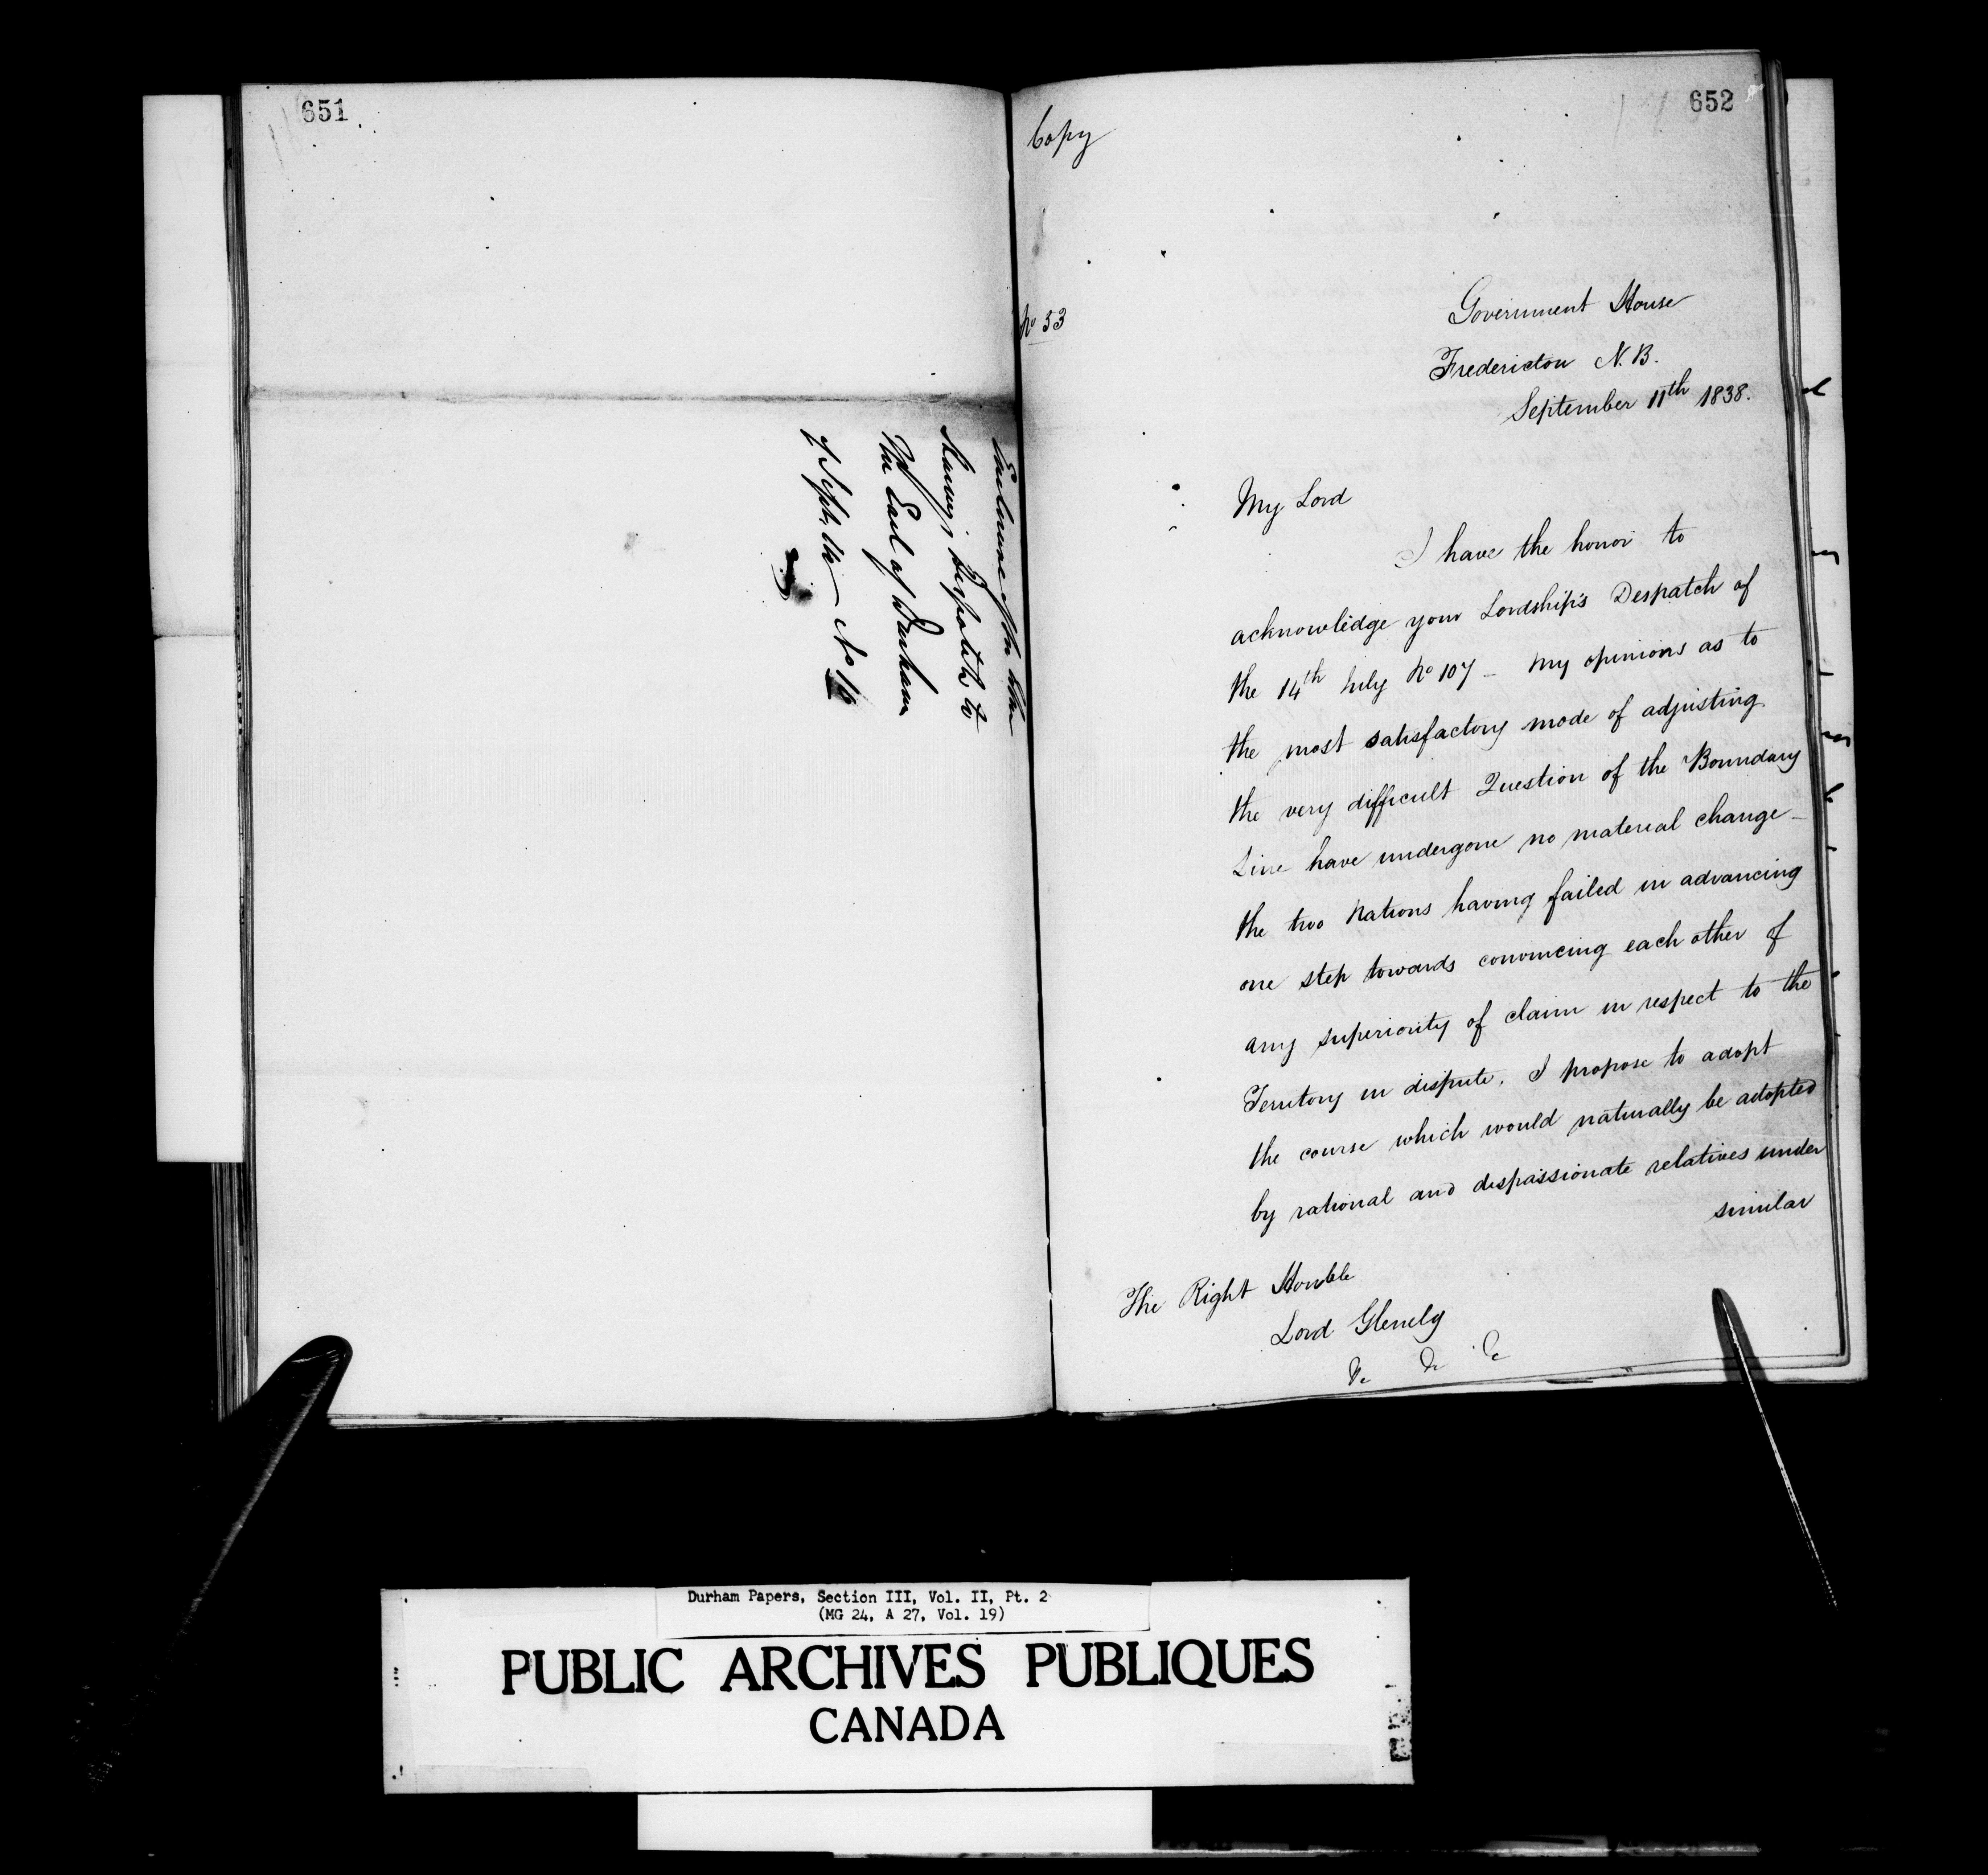 651
Enclosure of Sir John
Harvey's Despatch to
The Earl of Durham
of Septr.
652
Copy
No 33
Government House
Fredericton N.B.
September 11th 1838.
My Lord
I have the honor to
acknowledge your Lordship's Despatch of
the 14th July No 107 - My opinions as to
the most satisfactory mode of adjusting
the very difficult Question of the Boundary
Line have undergone no material change -
the two Nations having failed in advancing
one step towards convincing each other of
any superiority of claim in respect to the
Territory in dispute, I propose to adopt
the course which would naturally be adopted
by rational and dispassionate relatives under
similar
The Right Honble
Lord Glenelg
&c &c &c
Durham Papers, Section III, Vol. II, Pt. 2
(MG 24, A 27, Vol. 19)
PUBLIC ARCHIVES PUBLIQUES
CANADA